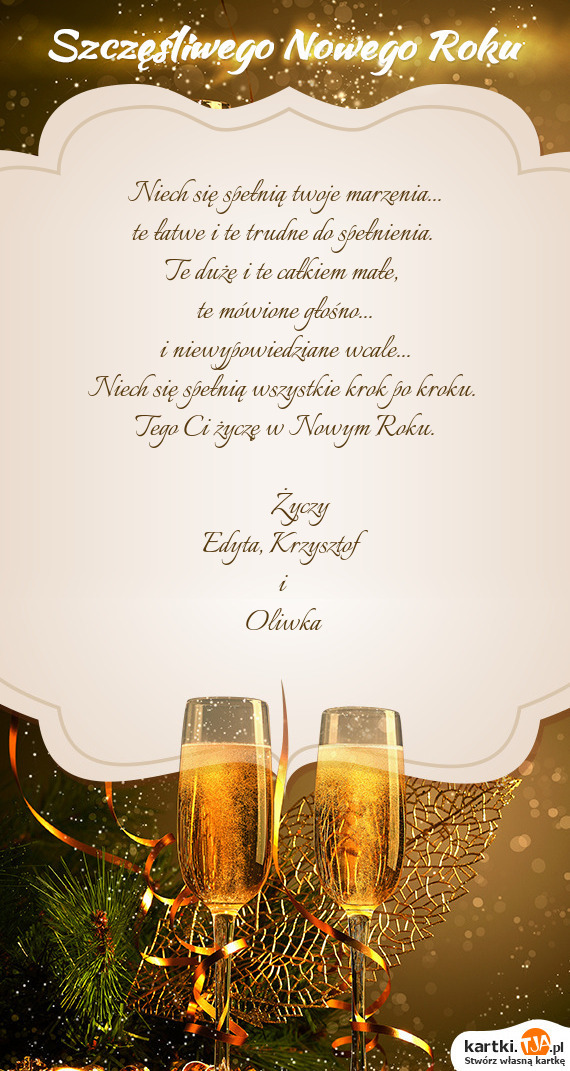 Szczęśliwego Nowego Roku
Niech się spełnią twoje marzenia...
te łatwe i te trudne do spełnienia.
Te duże i te całkiem małe,
te mówione głośno...
i niewypowiedziane wcale...
Niech się spełnią wszystkie krok po kroku.
Tego Ci życzę w Nowym Roku.
Życzy
Edyta, Krzysztof
i
Oliwka
kartki.TJA.pl
Stwórz własną kartkę